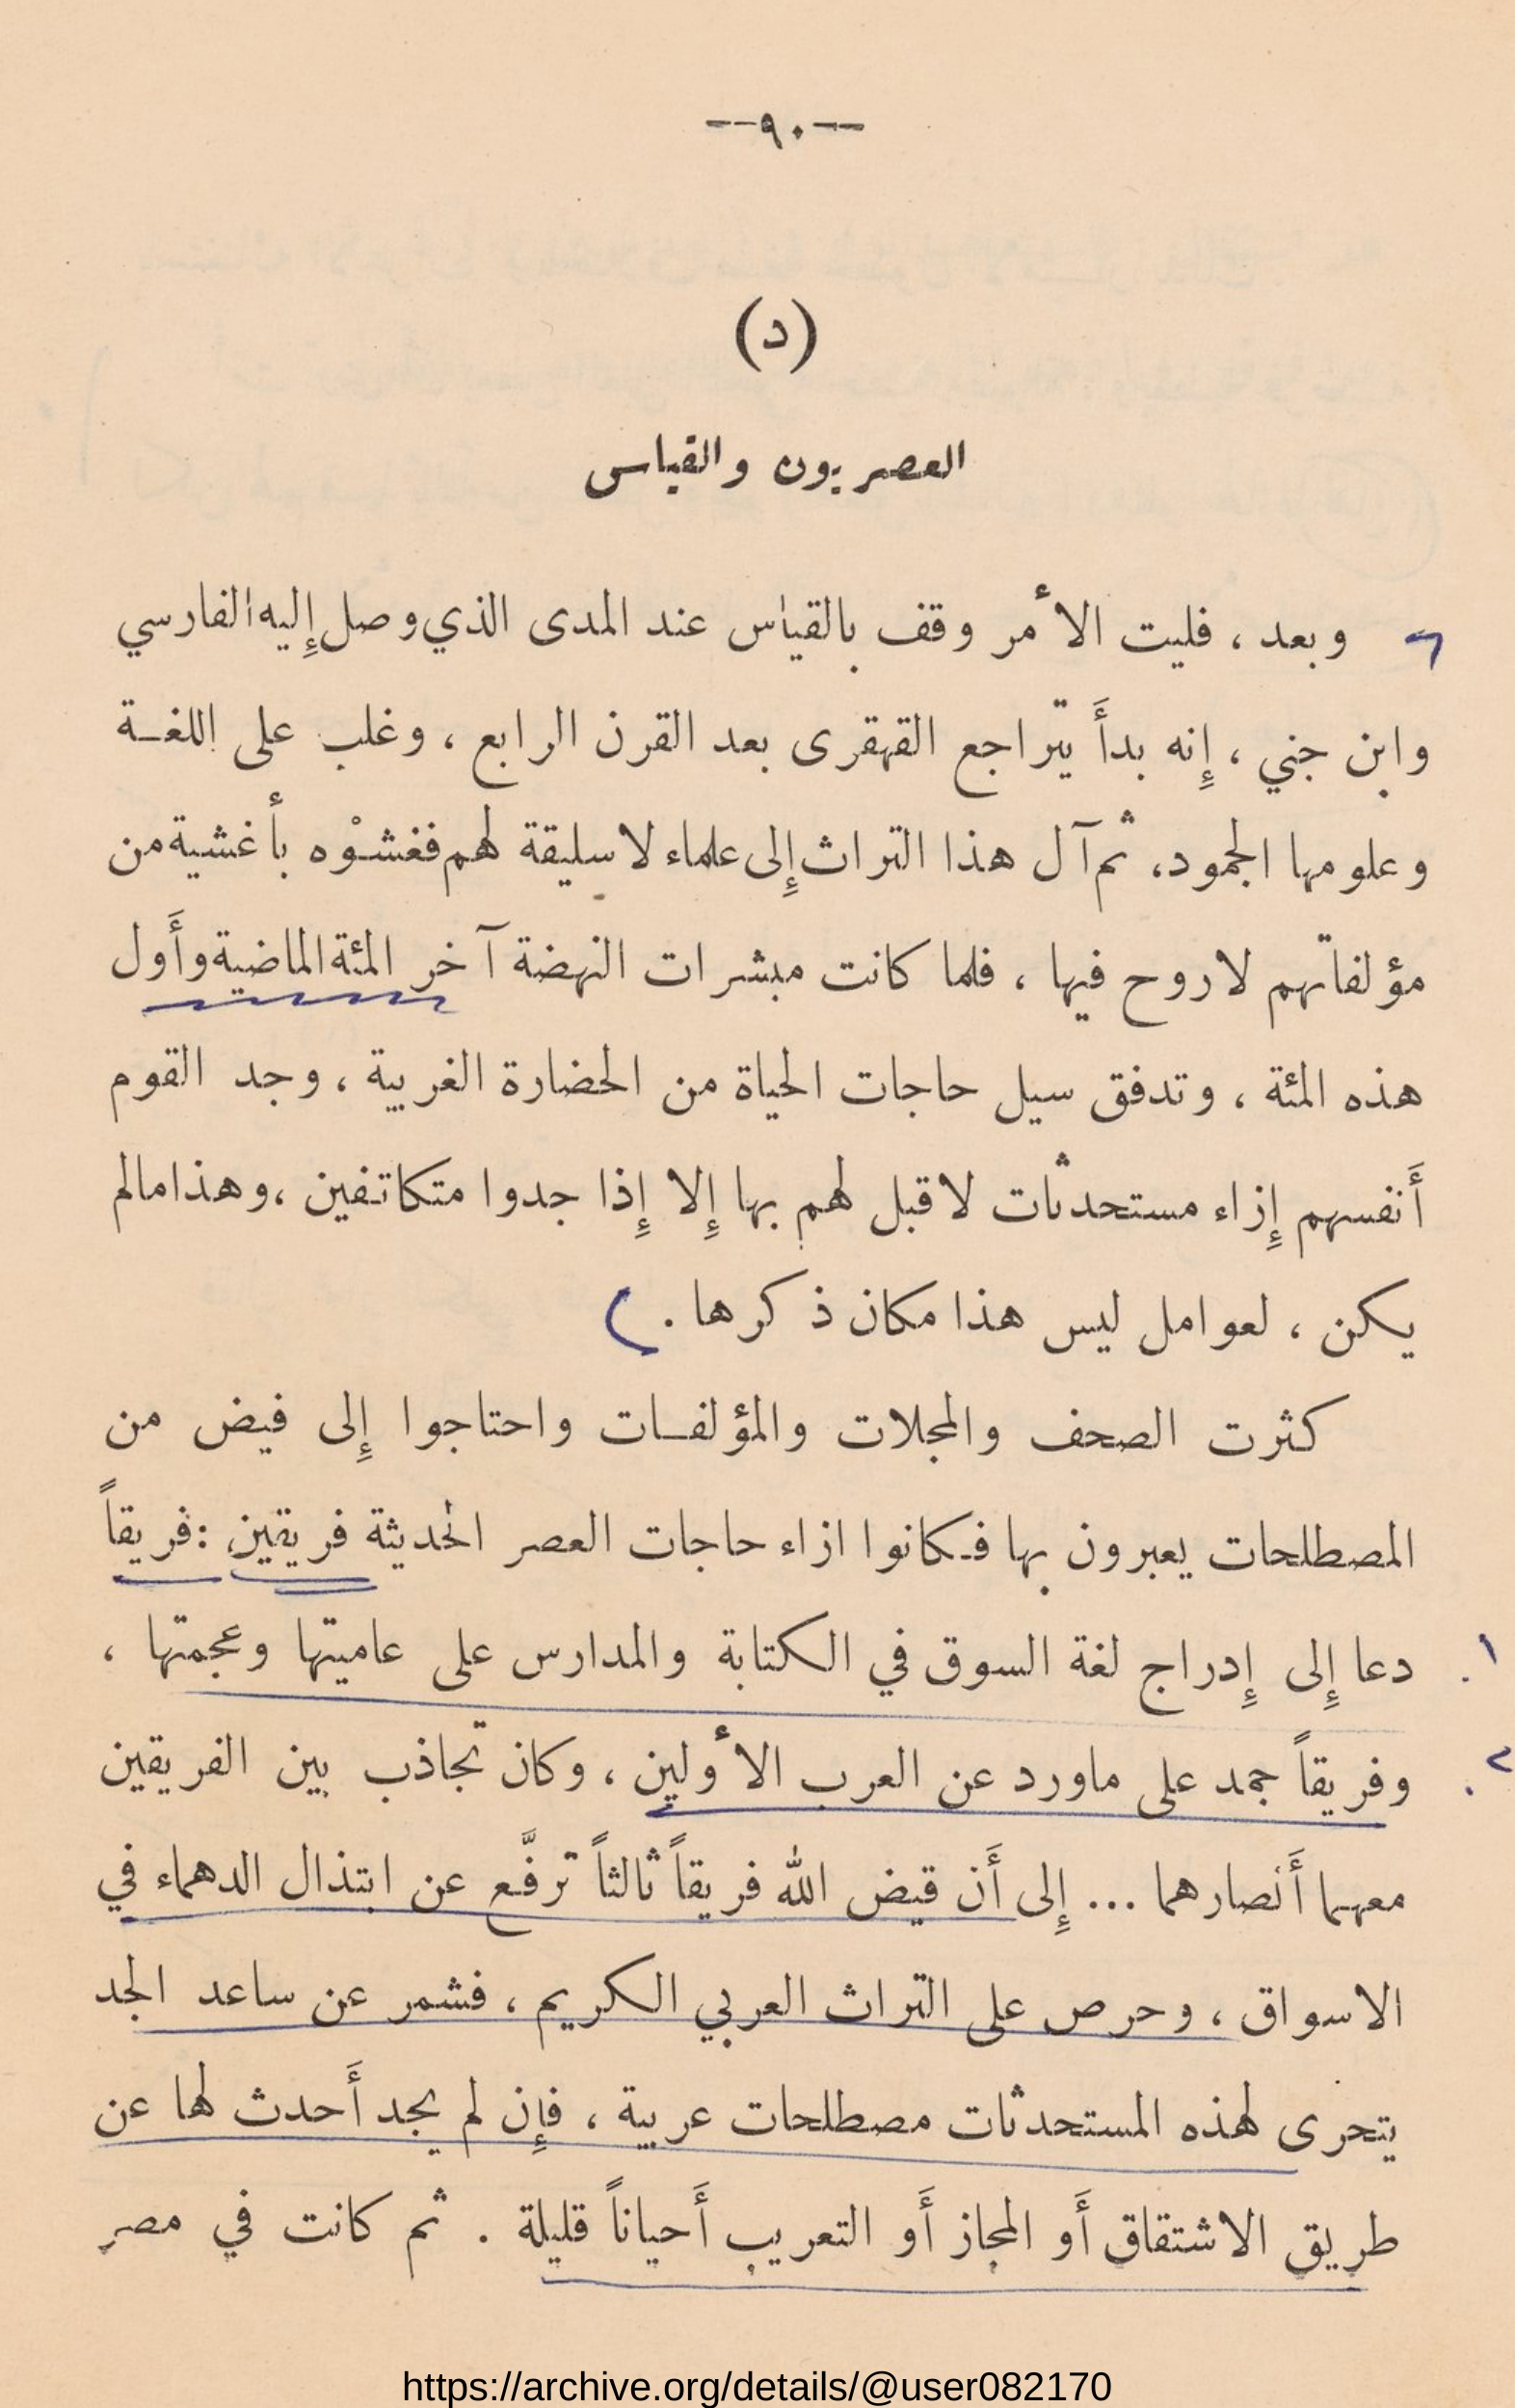 --٩٠--
(د)
العصريون والقياس
وبعد ، فليت الأمر وقف بالقياس عند المدى الذي وصل إليه الفارسي
وابن جني ، إنه بدأَ يتراجع القهقرى بعد القرن الرابع ، وغلب على اللغـة
وعلومها الجمود، ثم آل هذا التراث إلى علماء لا سليقة لهم فغشوْه بأغشية من
مؤلفاتهم لا روح فيها ، فلما كانت مبشرات النهضة آخر المئة الماضية وأَول
هذه المئة ، وتدفق سيل حاجات الحياة من الحضارة الغربية ، وجد القوم
أَنفسهم إِزاء مستحدثات لا قبل لهم بها إِلا إِذا جدوا متكاتفين ، وهذا مالم
يكن ، لعوامل ليس هذا مكان ذكرها .
كثرت الصحف والمجلات والمؤلفـات واحتاجوا إِلى فيض من
المصطلحات يعبرون بها فـكانوا ازاء حاجات العصر الحديثة فريقين : فريقاً
١. دعا إِلى إِدراج لغة السوق في الكتابة والمدارس على عاميتها وعجمتها ،
٢. وفريقاً جمد على ماورد عن العرب الأولين ، وكان تجاذب بين الفريقين
معهما أَنصارهما ... إِلى أَن قيض الله فريقاً ثالثاً ترفَّع عن ابتذال الدهماء في
الاسواق ، وحرص على التراث العربي الكريم ، فشمر عن ساعد الجد
يتحرى لهذه المستحدثات مصطلحات عربية ، فإِن لم يجد أَحدث لها عن
طريق الاشتقاق أَو المجاز أَو التعريب أَحياناً قليلة . ثم كانت في مصر
https://archive.org/details/@user082170